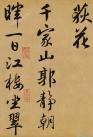 荻花
千家山郭靜朝
暉一日江樓坐翠